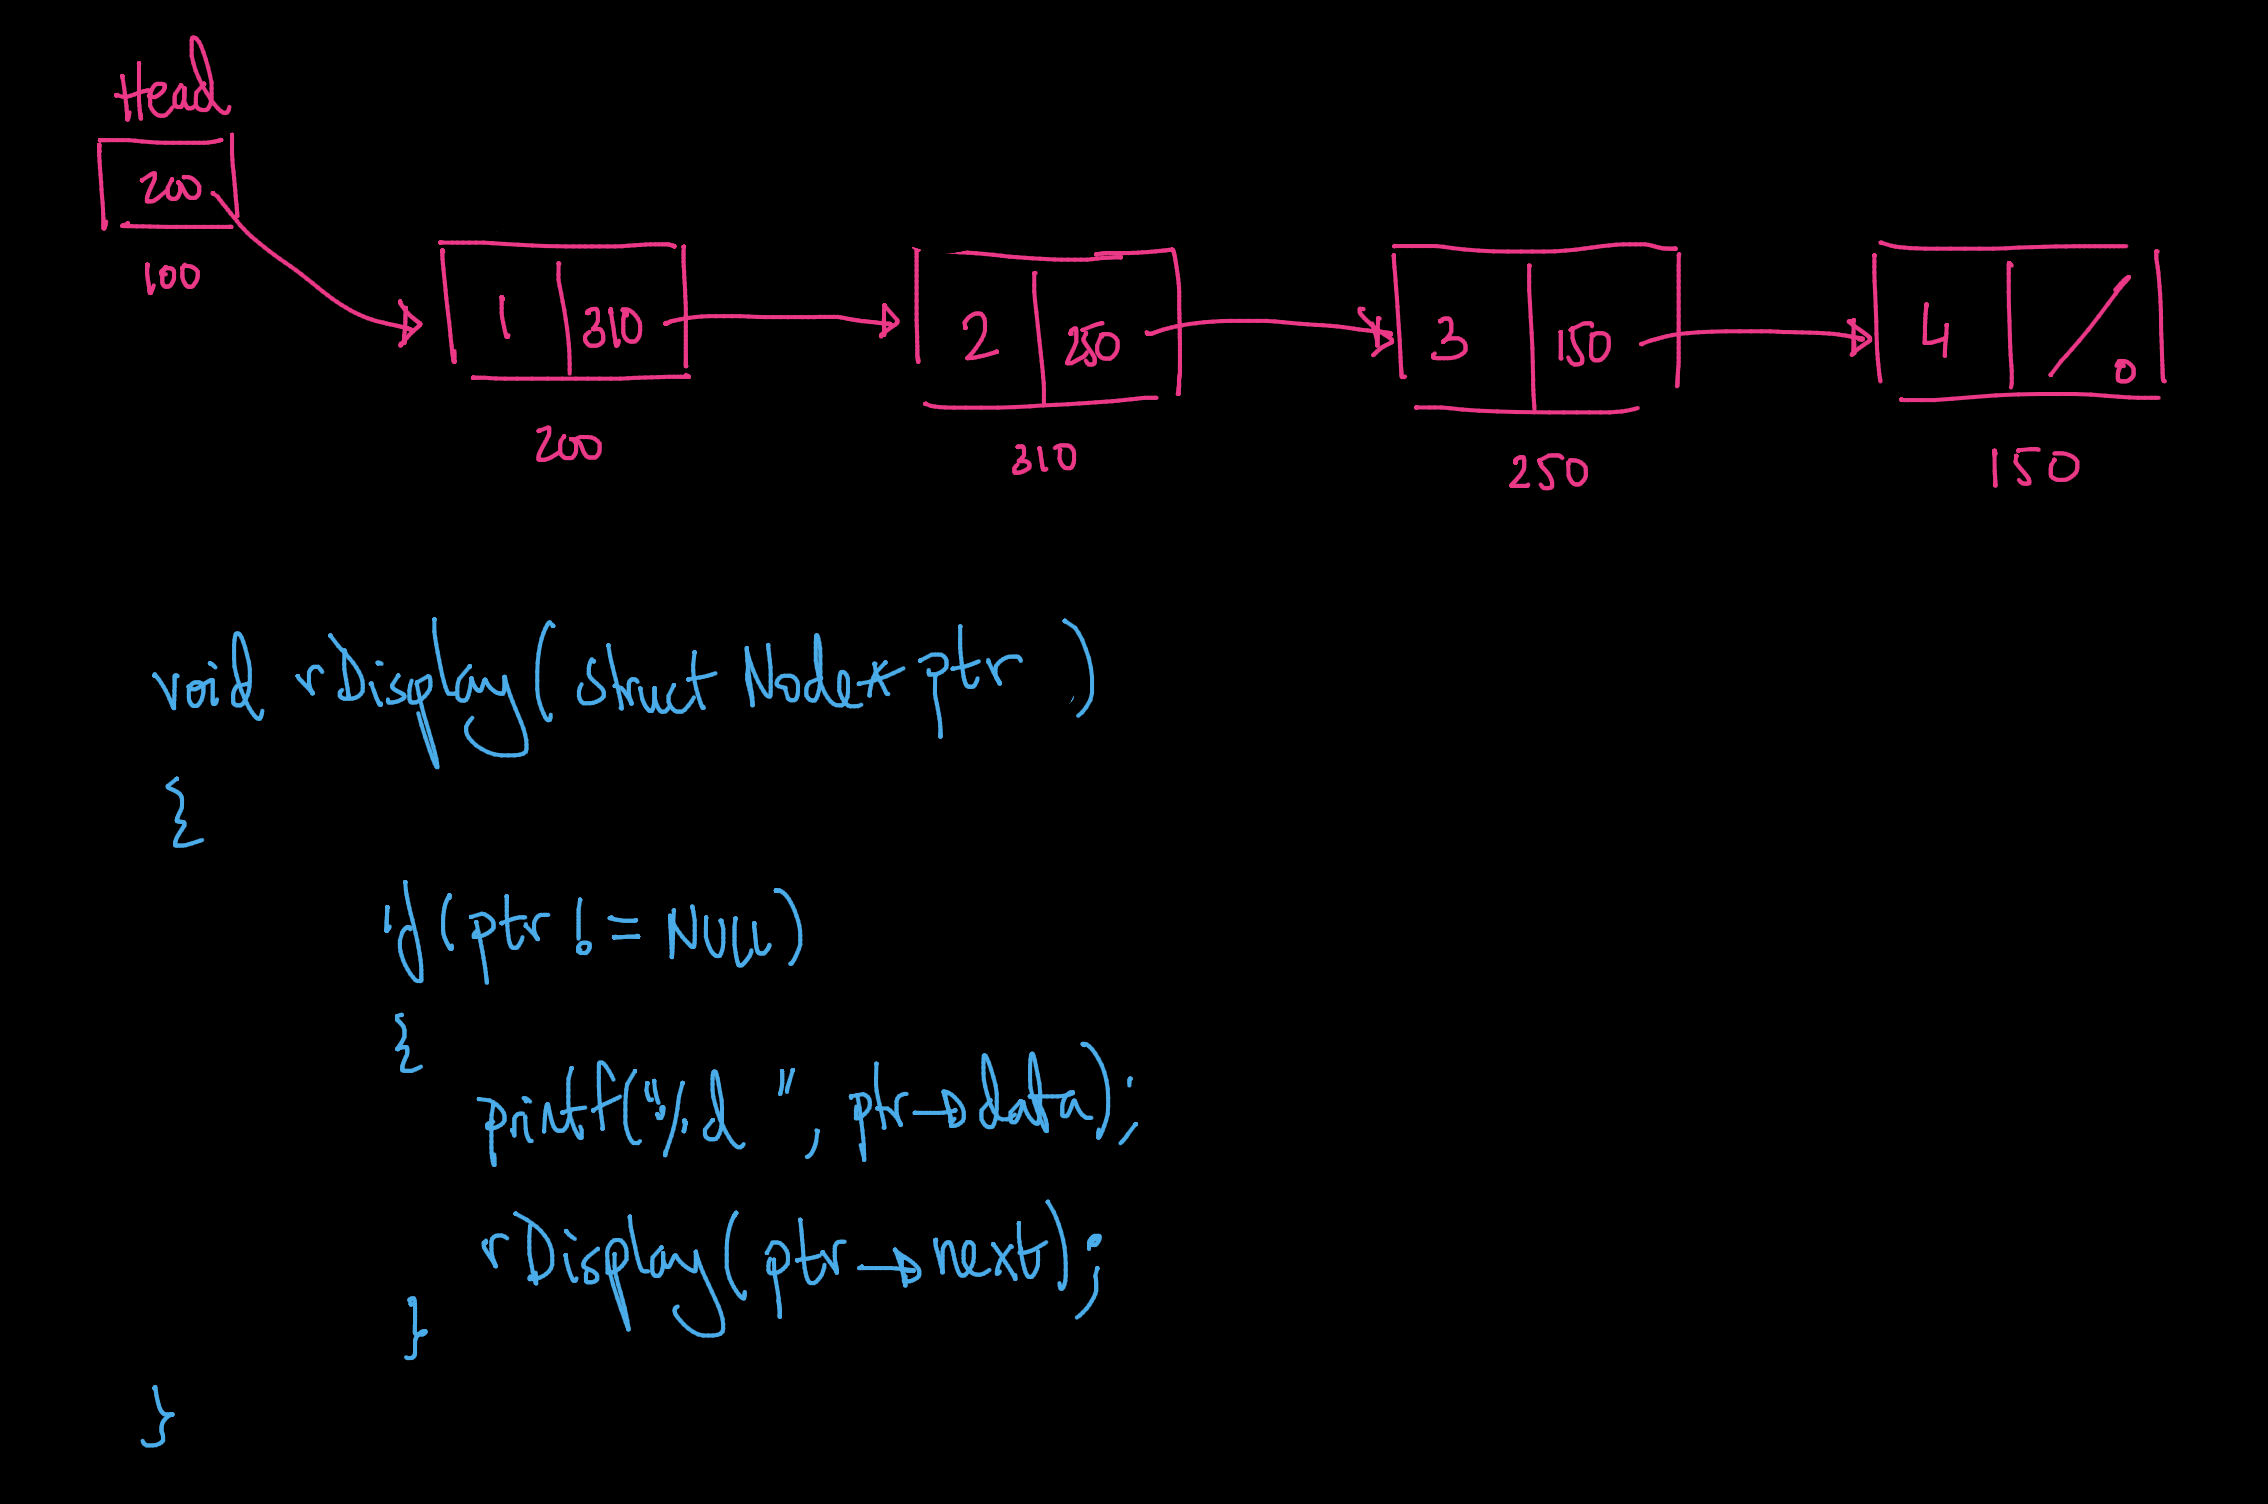 Head
200
100
1 310
2 250
3 150
4 0
200
310
250
150
void rDisplay(struct Node* ptr )
{
if(ptr != NULL)
{
printf("%d ", ptr→data);
rDisplay(ptr→next);
}
}